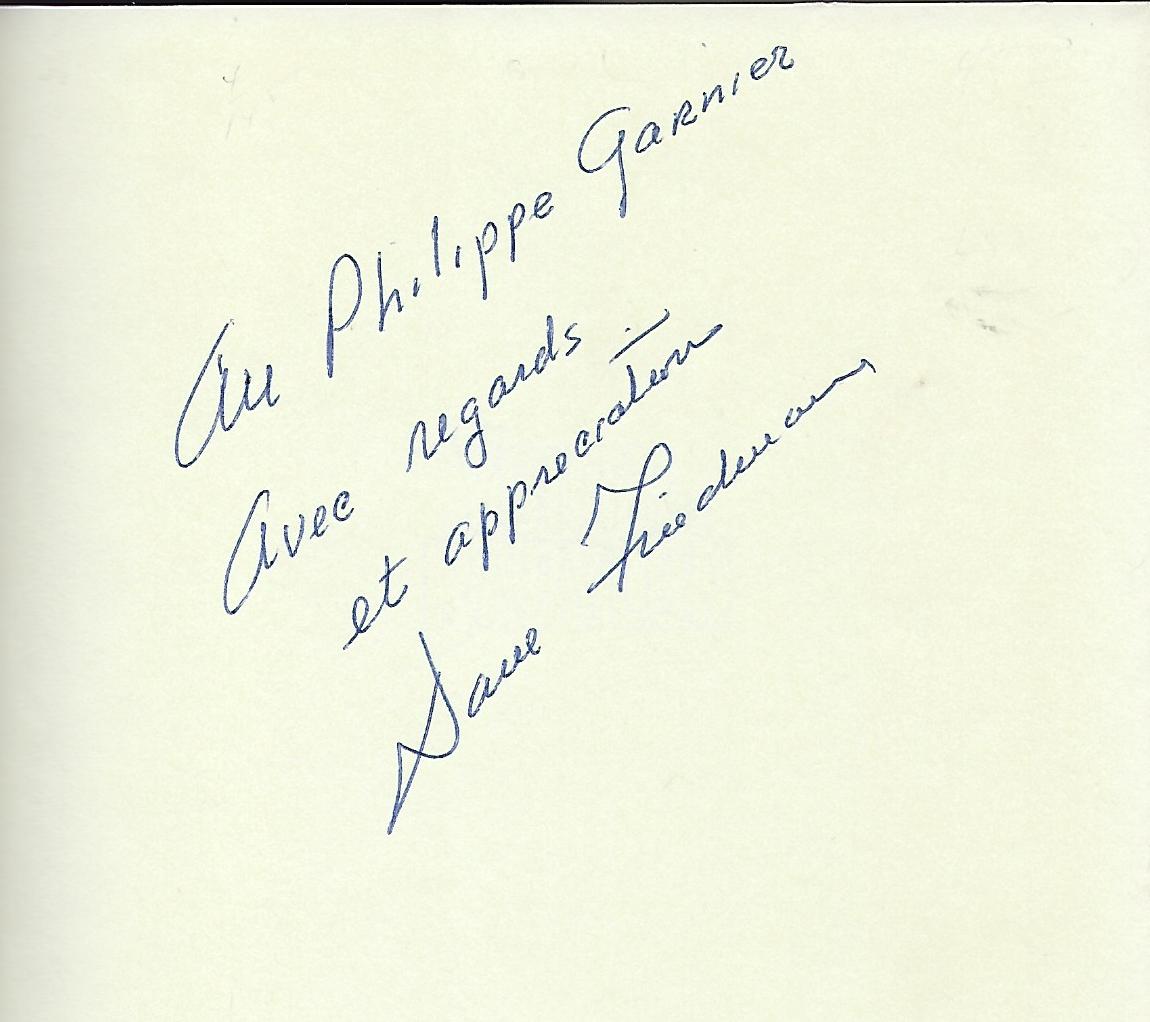 Au Philippe Garnier
Avec regards —
et appreciation
Dave Friedman